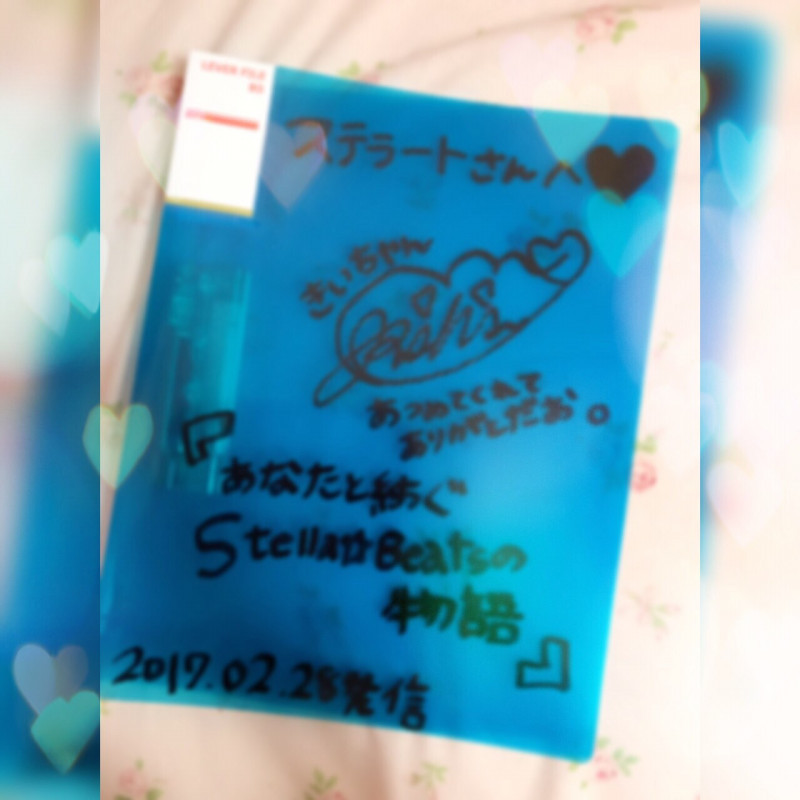 LEVER FILE
B5
ステラートさんへ♥
きいちゃん
あつめてくれて
ありがとだお。
『あなたと紡ぐ
Stellar☆Beatsの
物語』
2017.02.28発信